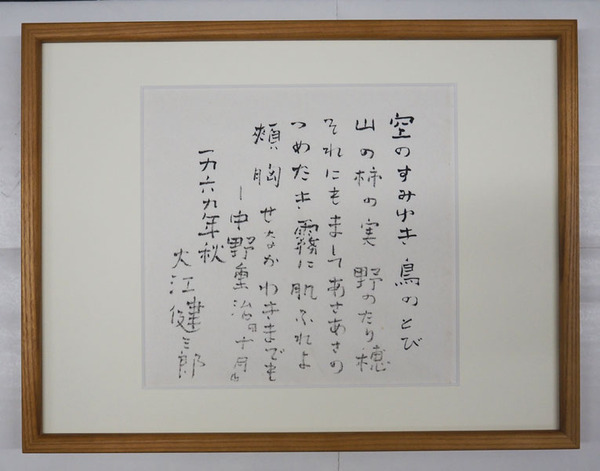 空のすみゆき 鳥のとび
山の柿の実 野のたり穂
それにもまして あさあさの
つめたき霧に 肌ふれよ
頬 胸 せなか わきまでも
—中野重治「十月」
一九六九年秋
大江健三郎